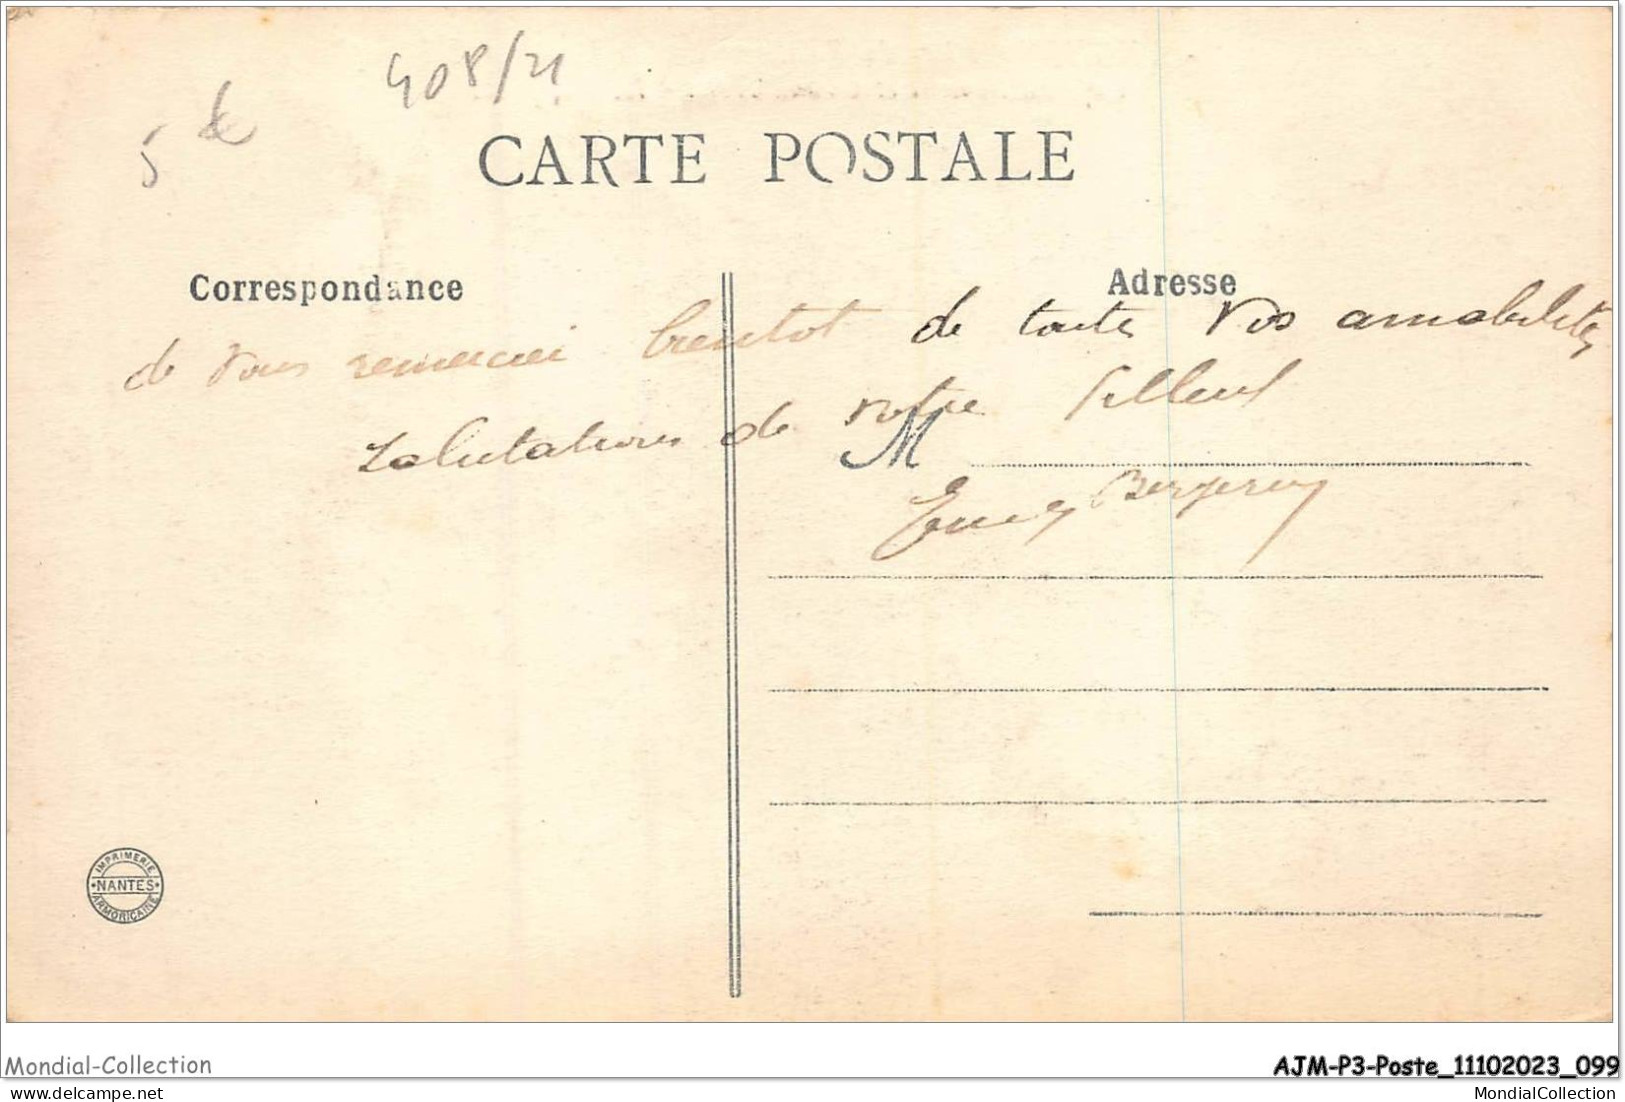 408/21
5 €
CARTE POSTALE
Correspondance
Adresse
de vous remercier bientot de toute vos amabilités
Salutations de votre filleul
M
Bergeron
IMPRIMERIE
NANTES
ARMORICAINE
Mondial-Collection
AJM-P3-Poste_11102023_099
www.delcampe.net
MondialCollection